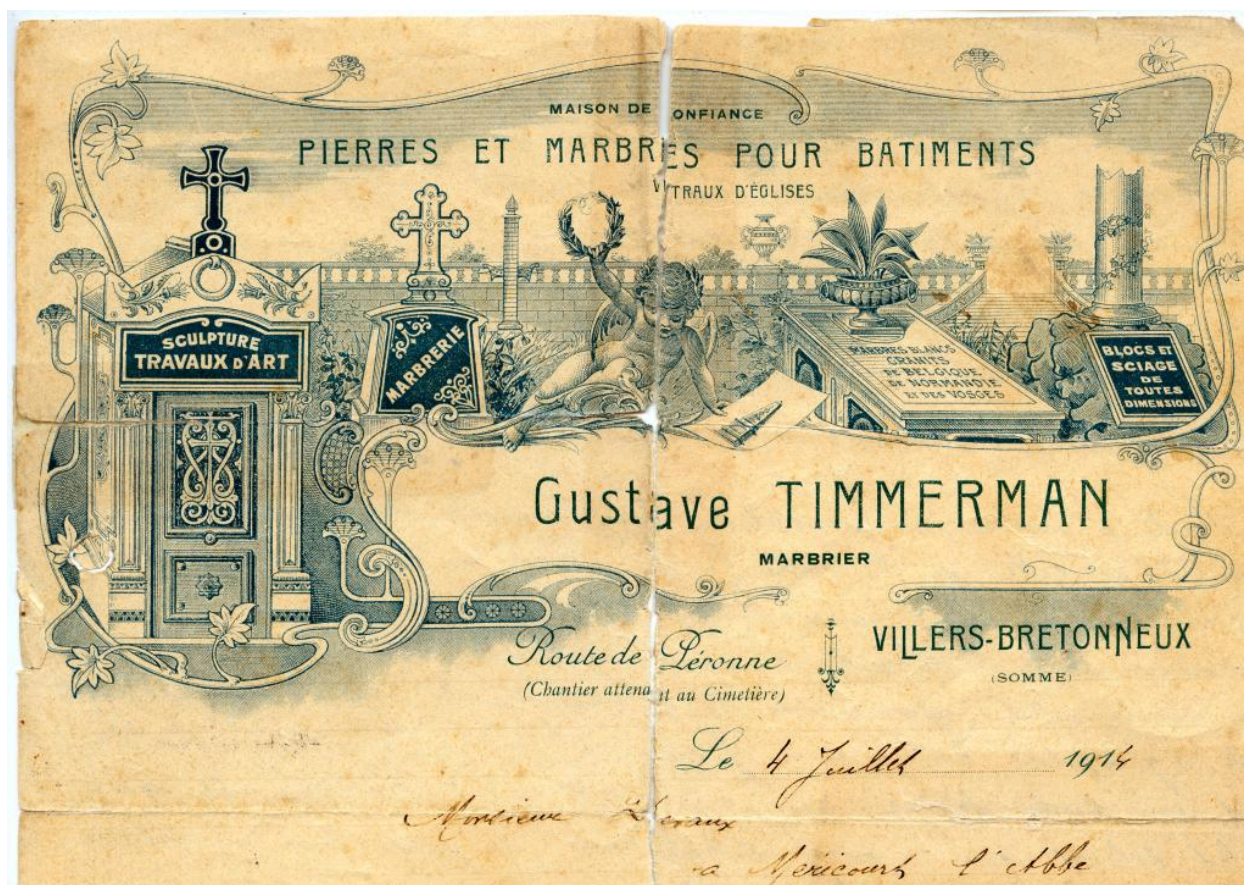 MAISON DE CONFIANCE
PIERRES ET MARBRES POUR BATIMENTS
VITRAUX D'ÉGLISES
SCULPTURE
TRAVAUX D'ART
MARBRERIE
MARBRES BLANCS
GRANITS
DE BELGIQUE
DE NORMANDIE
ET DES VOSGES
BLOCS ET
SCIAGE
DE
TOUTES
DIMENSIONS
Gustave TIMMERMAN
MARBRIER
Route de Péronne
(Chantier attenant au Cimetière)
VILLERS-BRETONNEUX
(SOMME)
Le 4 Juillet 1914
Monsieur
a Mericourt l'Abbe